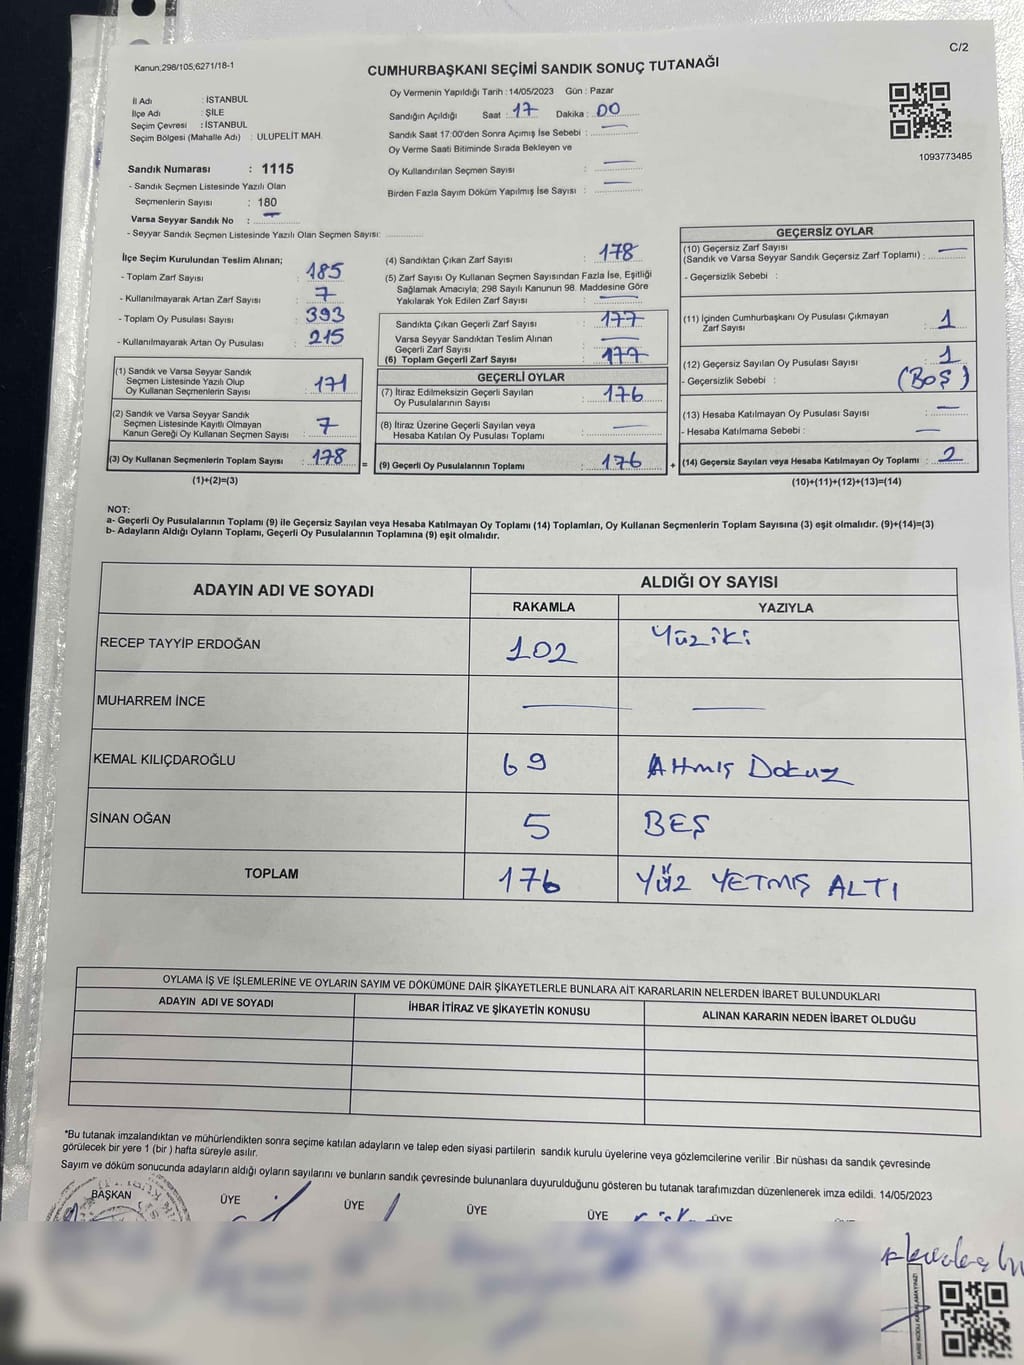 C/2
Kanun;298/105;6271/18-1
CUMHURBAŞKANI SEÇİMİ SANDIK SONUÇ TUTANAĞI
İl Adı : İSTANBUL
İlçe Adı : ŞİLE
Seçim Çevresi : İSTANBUL
Seçim Bölgesi (Mahalle Adı) : ULUPELİT MAH.
Oy Vermenin Yapıldığı Tarih : 14/05/2023 Gün : Pazar
Sandığın Açıldığı Saat : 17 Dakika : 00
Sandık Saat 17:00'den Sonra Açımış İse Sebebi : —
Oy Verme Saati Bitiminde Sırada Bekleyen ve
Oy Kullandırılan Seçmen Sayısı : —
Birden Fazla Sayım Döküm Yapılmış İse Sayısı : —
1093773485
Sandık Numarası : 1115
- Sandık Seçmen Listesinde Yazılı Olan
Seçmenlerin Sayısı : 180
Varsa Seyyar Sandık No : —
- Seyyar Sandık Seçmen Listesinde Yazılı Olan Seçmen Sayısı:
İlçe Seçim Kurulundan Teslim Alınan;
- Toplam Zarf Sayısı : 185
- Kullanılmayarak Artan Zarf Sayısı : 7
- Toplam Oy Pusulası Sayısı : 393
- Kullanılmayarak Artan Oy Pusulası : 215
(1) Sandık ve Varsa Seyyar Sandık
Seçmen Listesinde Yazılı Olup
Oy Kullanan Seçmenlerin Sayısı : 171
(2) Sandık ve Varsa Seyyar Sandık
Seçmen Listesinde Kayıtlı Olmayan
Kanun Gereği Oy Kullanan Seçmen Sayısı : 7
(3) Oy Kullanan Seçmenlerin Toplam Sayısı : 178
(1)+(2)=(3)
(4) Sandıktan Çıkan Zarf Sayısı : 178
(5) Zarf Sayısı Oy Kullanan Seçmen Sayısından Fazla İse, Eşitliği
Sağlamak Amacıyla; 298 Sayılı Kanunun 98. Maddesine Göre
Yakılarak Yok Edilen Zarf Sayısı : —
Sandıkta Çıkan Geçerli Zarf Sayısı : 177
Varsa Seyyar Sandıktan Teslim Alınan
Geçerli Zarf Sayısı : —
(6) Toplam Geçerli Zarf Sayısı : 177
GEÇERLİ OYLAR
(7) İtiraz Edilmeksizin Geçerli Sayılan
Oy Pusulalarının Sayısı : 176
(8) İtiraz Üzerine Geçerli Sayılan veya
Hesaba Katılan Oy Pusulası Toplamı : —
= (9) Geçerli Oy Pusulalarının Toplamı : 176
GEÇERSİZ OYLAR
(10) Geçersiz Zarf Sayısı
(Sandık ve Varsa Seyyar Sandık Geçersiz Zarf Toplamı) : —
- Geçersizlik Sebebi :
(11) İçinden Cumhurbaşkanı Oy Pusulası Çıkmayan
Zarf Sayısı : 1
(12) Geçersiz Sayılan Oy Pusulası Sayısı : 1
- Geçersizlik Sebebi : (BOŞ)
(13) Hesaba Katılmayan Oy Pusulası Sayısı : —
- Hesaba Katılmama Sebebi : —
+ (14) Geçersiz Sayılan veya Hesaba Katılmayan Oy Toplamı : 2
(10)+(11)+(12)+(13)=(14)
NOT:
a- Geçerli Oy Pusulalarının Toplamı (9) ile Geçersiz Sayılan veya Hesaba Katılmayan Oy Toplamı (14) Toplamları, Oy Kullanan Seçmenlerin Toplam Sayısına (3) eşit olmalıdır. (9)+(14)=(3)
b- Adayların Aldığı Oyların Toplamı, Geçerli Oy Pusulalarının Toplamına (9) eşit olmalıdır.
ADAYIN ADI VE SOYADI
ALDIĞI OY SAYISI
RAKAMLA YAZIYLA
RECEP TAYYİP ERDOĞAN 102 Yüziki
MUHARREM İNCE — —
KEMAL KILIÇDAROĞLU 69 Altmış Dokuz
SİNAN OĞAN 5 BEŞ
TOPLAM 176 YÜZ YETMİŞ ALTI
OYLAMA İŞ VE İŞLEMLERİNE VE OYLARIN SAYIM VE DÖKÜMÜNE DAİR ŞİKAYETLERLE BUNLARA AİT KARARLARIN NELERDEN İBARET BULUNDUKLARI
ADAYIN ADI VE SOYADI İHBAR İTİRAZ VE ŞİKAYETİN KONUSU ALINAN KARARIN NEDEN İBARET OLDUĞU
*Bu tutanak imzalandıktan ve mühürlendikten sonra seçime katılan adayların ve talep eden siyasi partilerin sandık kurulu üyelerine veya gözlemcilerine verilir .Bir nüshası da sandık çevresinde
görülecek bir yere 1 (bir ) hafta süreyle asılır.
Sayım ve döküm sonucunda adayların aldığı oyların sayılarını ve bunların sandık çevresinde bulunanlara duyurulduğunu gösteren bu tutanak tarafımızdan düzenlenerek imza edildi. 14/05/2023
BAŞKAN ÜYE ÜYE ÜYE ÜYE ÜYE